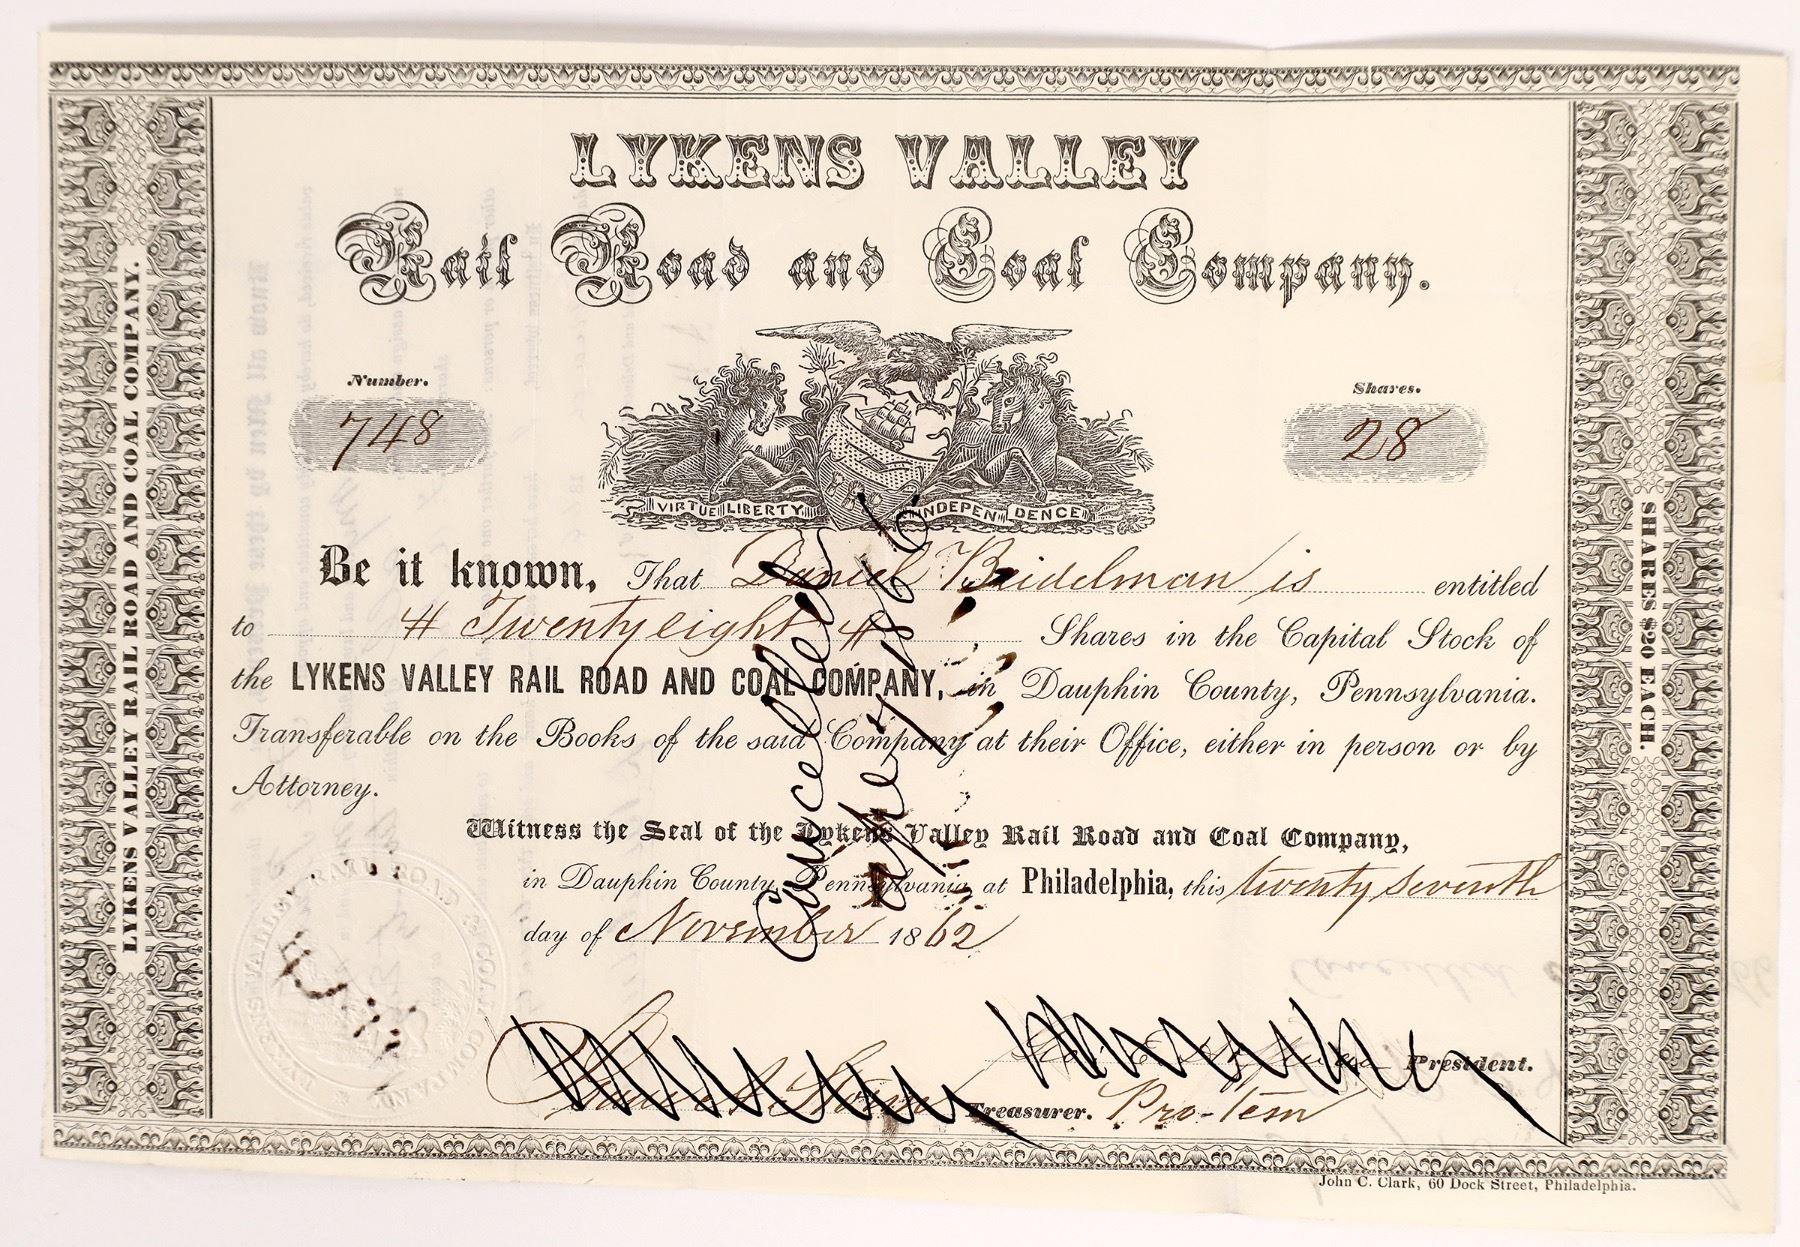 LYKENS VALLEY
Rail Road and Coal Company.
Number.
748
Shares.
28
VIRTUE LIBERTY INDEPENDENCE
Be it known, That Daniel Beidelman is entitled
to # Twenty eight # Shares in the Capital Stock of
the LYKENS VALLEY RAIL ROAD AND COAL COMPANY, in Dauphin County, Pennsylvania.
Transferable on the Books of the said Company at their Office, either in person or by
Attorney.
Witness the Seal of the Lykens Valley Rail Road and Coal Company,
in Dauphin County Pennsylvania, at Philadelphia, this twenty seventh
day of November 1862
President.
Treasurer. Pro-Tem
Cancelled
1866
LYKENS VALLEY RAIL ROAD AND COAL COMPANY.
SHARES $20 EACH.
LYKENS VALLEY RAIL ROAD & COAL COMPANY
John C. Clark, 60 Dock Street, Philadelphia.